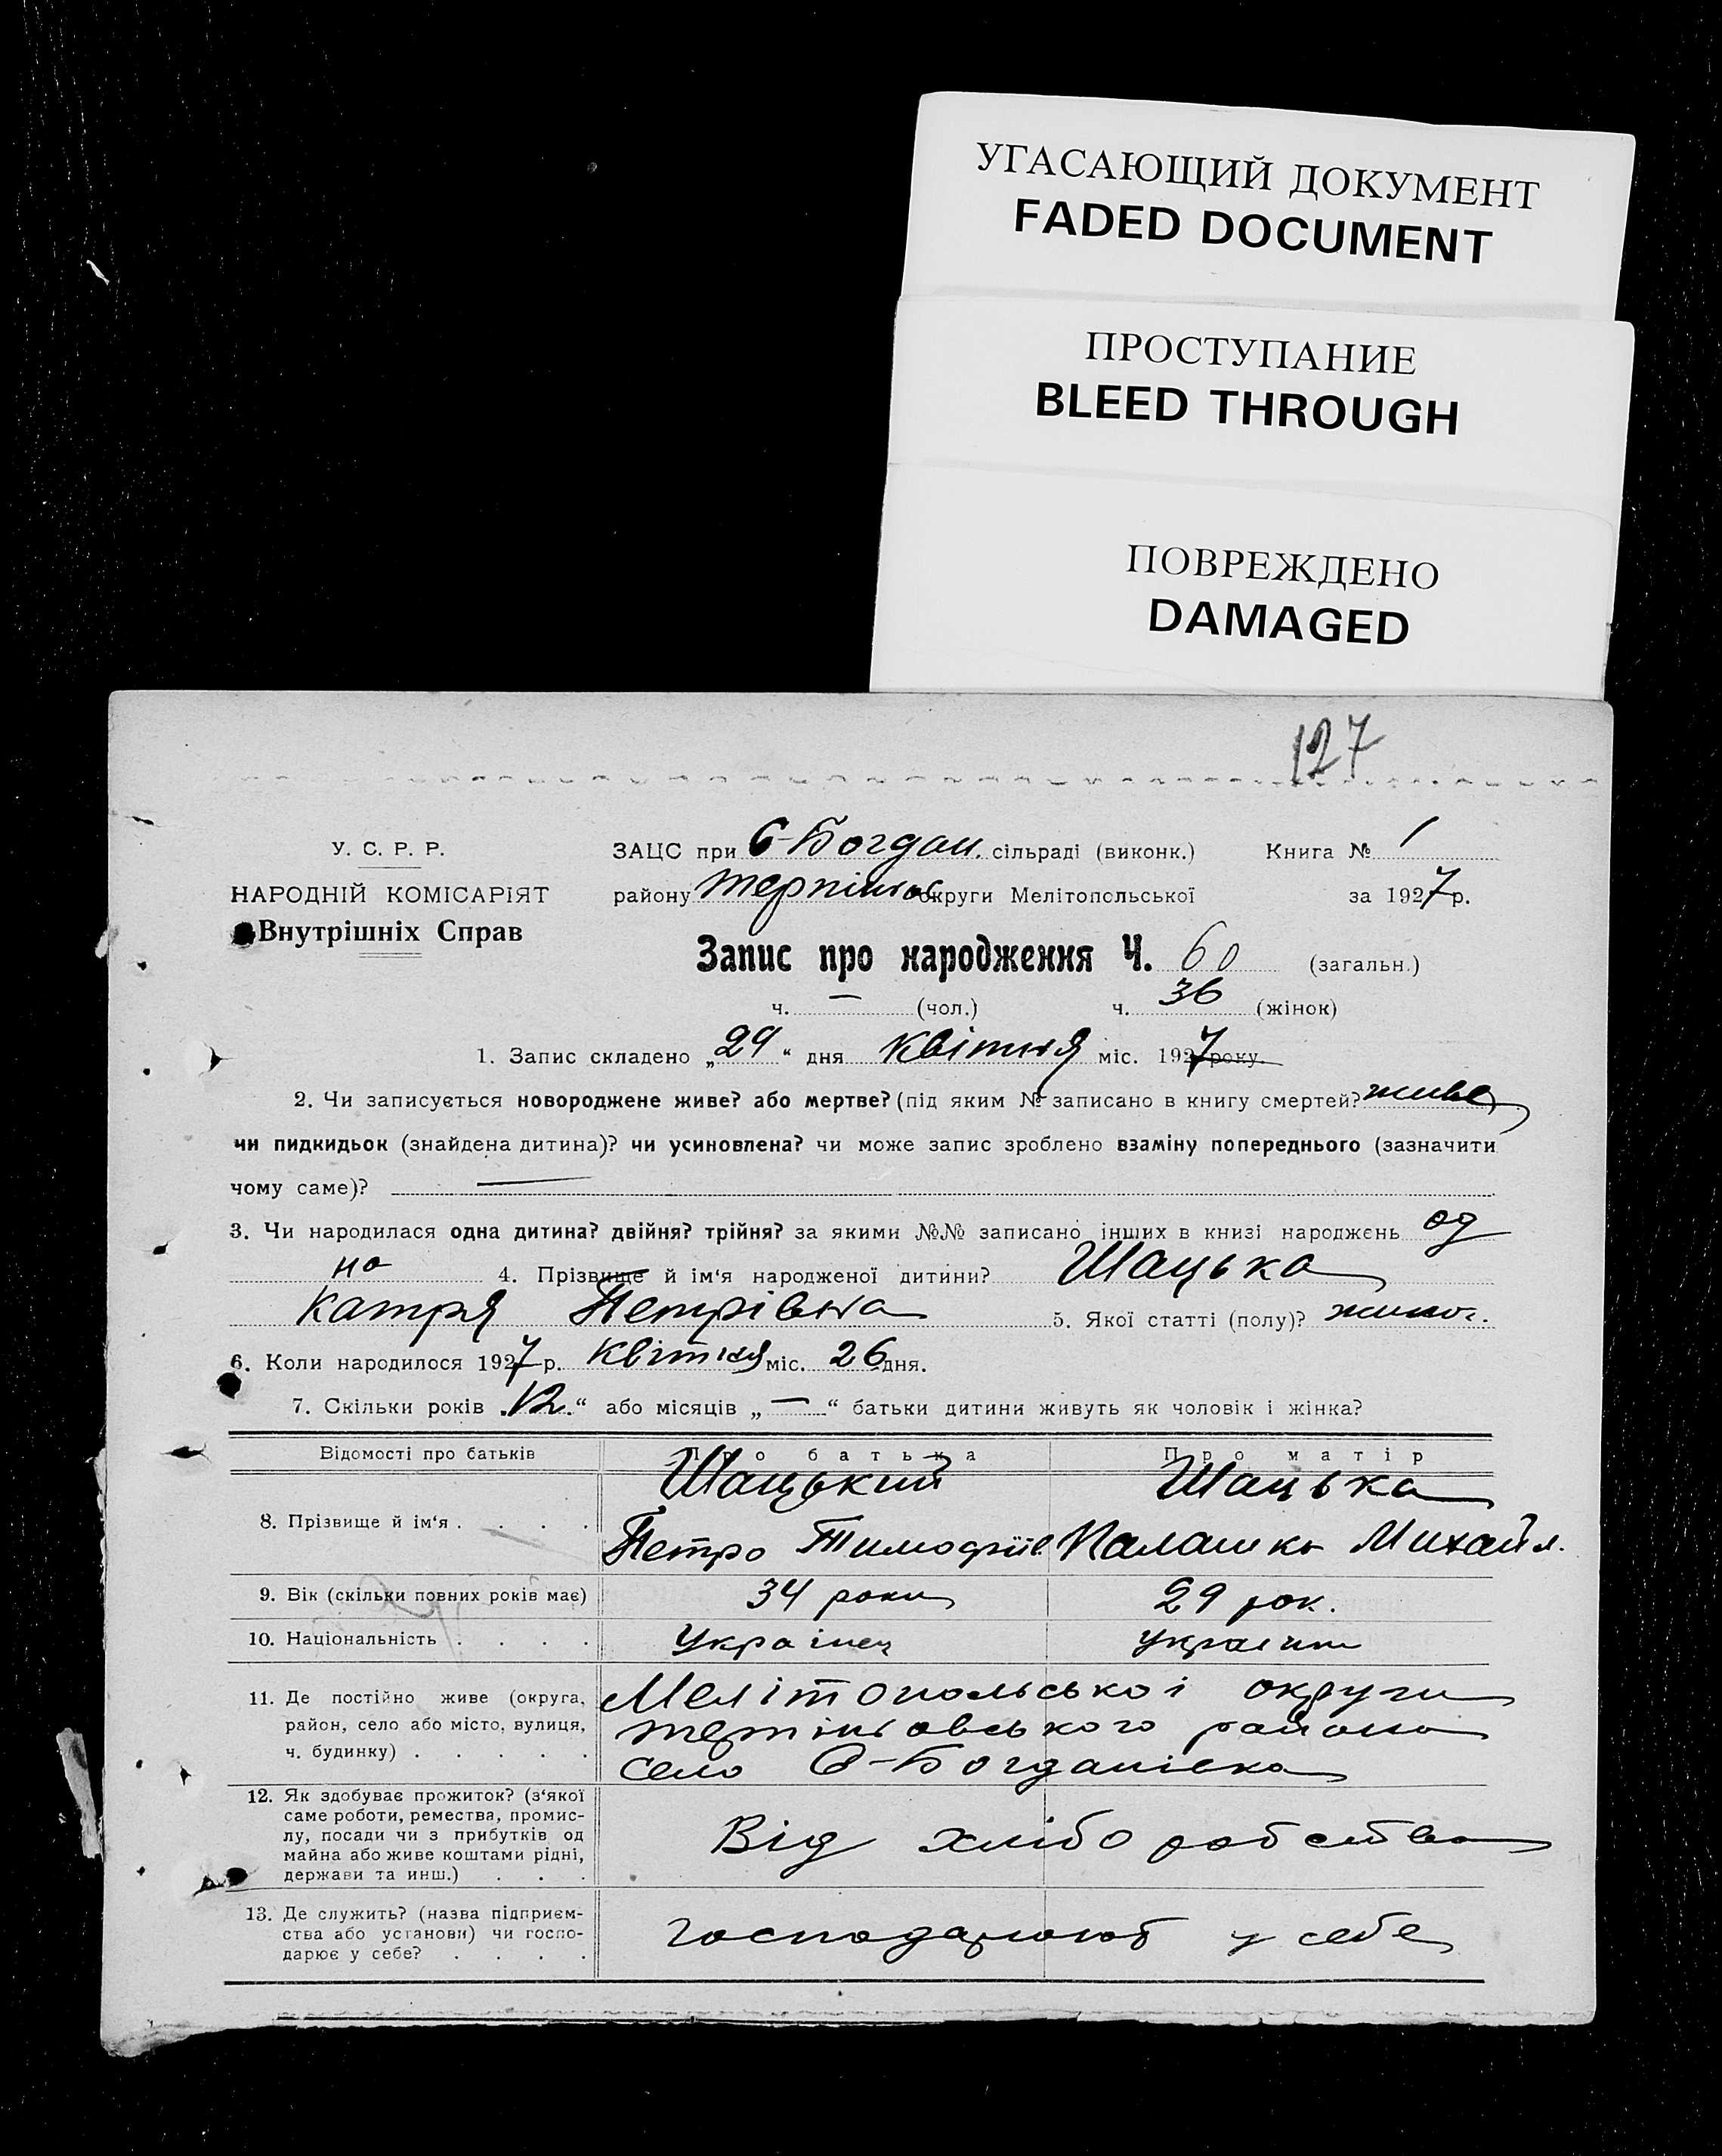 УГАСАЮЩИЙ ДОКУМЕНТ
FADED DOCUMENT
ПРОСТУПАНИЕ
BLEED THROUGH
ПОВРЕЖДЕНО
DAMAGED
127
У. С. Р. Р.
НАРОДНІЙ КОМІСАРІЯТ
Внутрішніх Справ
ЗАЦС при С-Богдан. сільраді (виконк.) Книга № 1
району Терпіннов округи Мелітопольської за 1927 р.
Запис про народження Ч. 60 (загальн.)
ч. — (чол.) ч. 36 (жінок)
1. Запис складено „29“ дня Квітня міс. 1927 року.
2. Чи записується новороджене живе? або мертве? (під яким № записано в книгу смертей? живе
чи пидкидьок (знайдена дитина)? чи усиновлена? чи може запис зроблено взаміну попереднього (зазначити
чому саме)? —
3. Чи народилася одна дитина? двійня? трійня? за якими №№ записано інших в книзі народжень од
на 4. Прізвище й ім‘я народженої дитини? Шацька
Катря Петрівна 5. Якої статті (полу)? жіноч.
6. Коли народилося 1927 р. Квітня міс. 26 дня.
7. Скільки років „12“ або місяців „—“ батьки дитини живуть як чоловік і жінка?
Відомості про батьків Про батька Про матір
8. Прізвище й ім‘я . . . . Шацький Шацька
Петро Тимофіїв. Палашка Михайл.
9. Вік (скільки повних років має) 34 роки 29 рок.
10. Національність . . . . Українец українка
11. Де постійно живе (округа, Мелітопольської округи
район, село або місто, вулиця, терпіновського района
ч. будинку) . . . . . село С-Богданівка
12. Як здобуває прожиток? (з‘якої
саме роботи, ремества, промис-
лу, посади чи з прибутків од
майна або живе коштами рідні,
держави та инш.) . . .
Від хлібо робства
13. Де служить? (назва підприєм-
ства або установи) чи госпо-
дарює у себе? . . . .
господарюют у себе